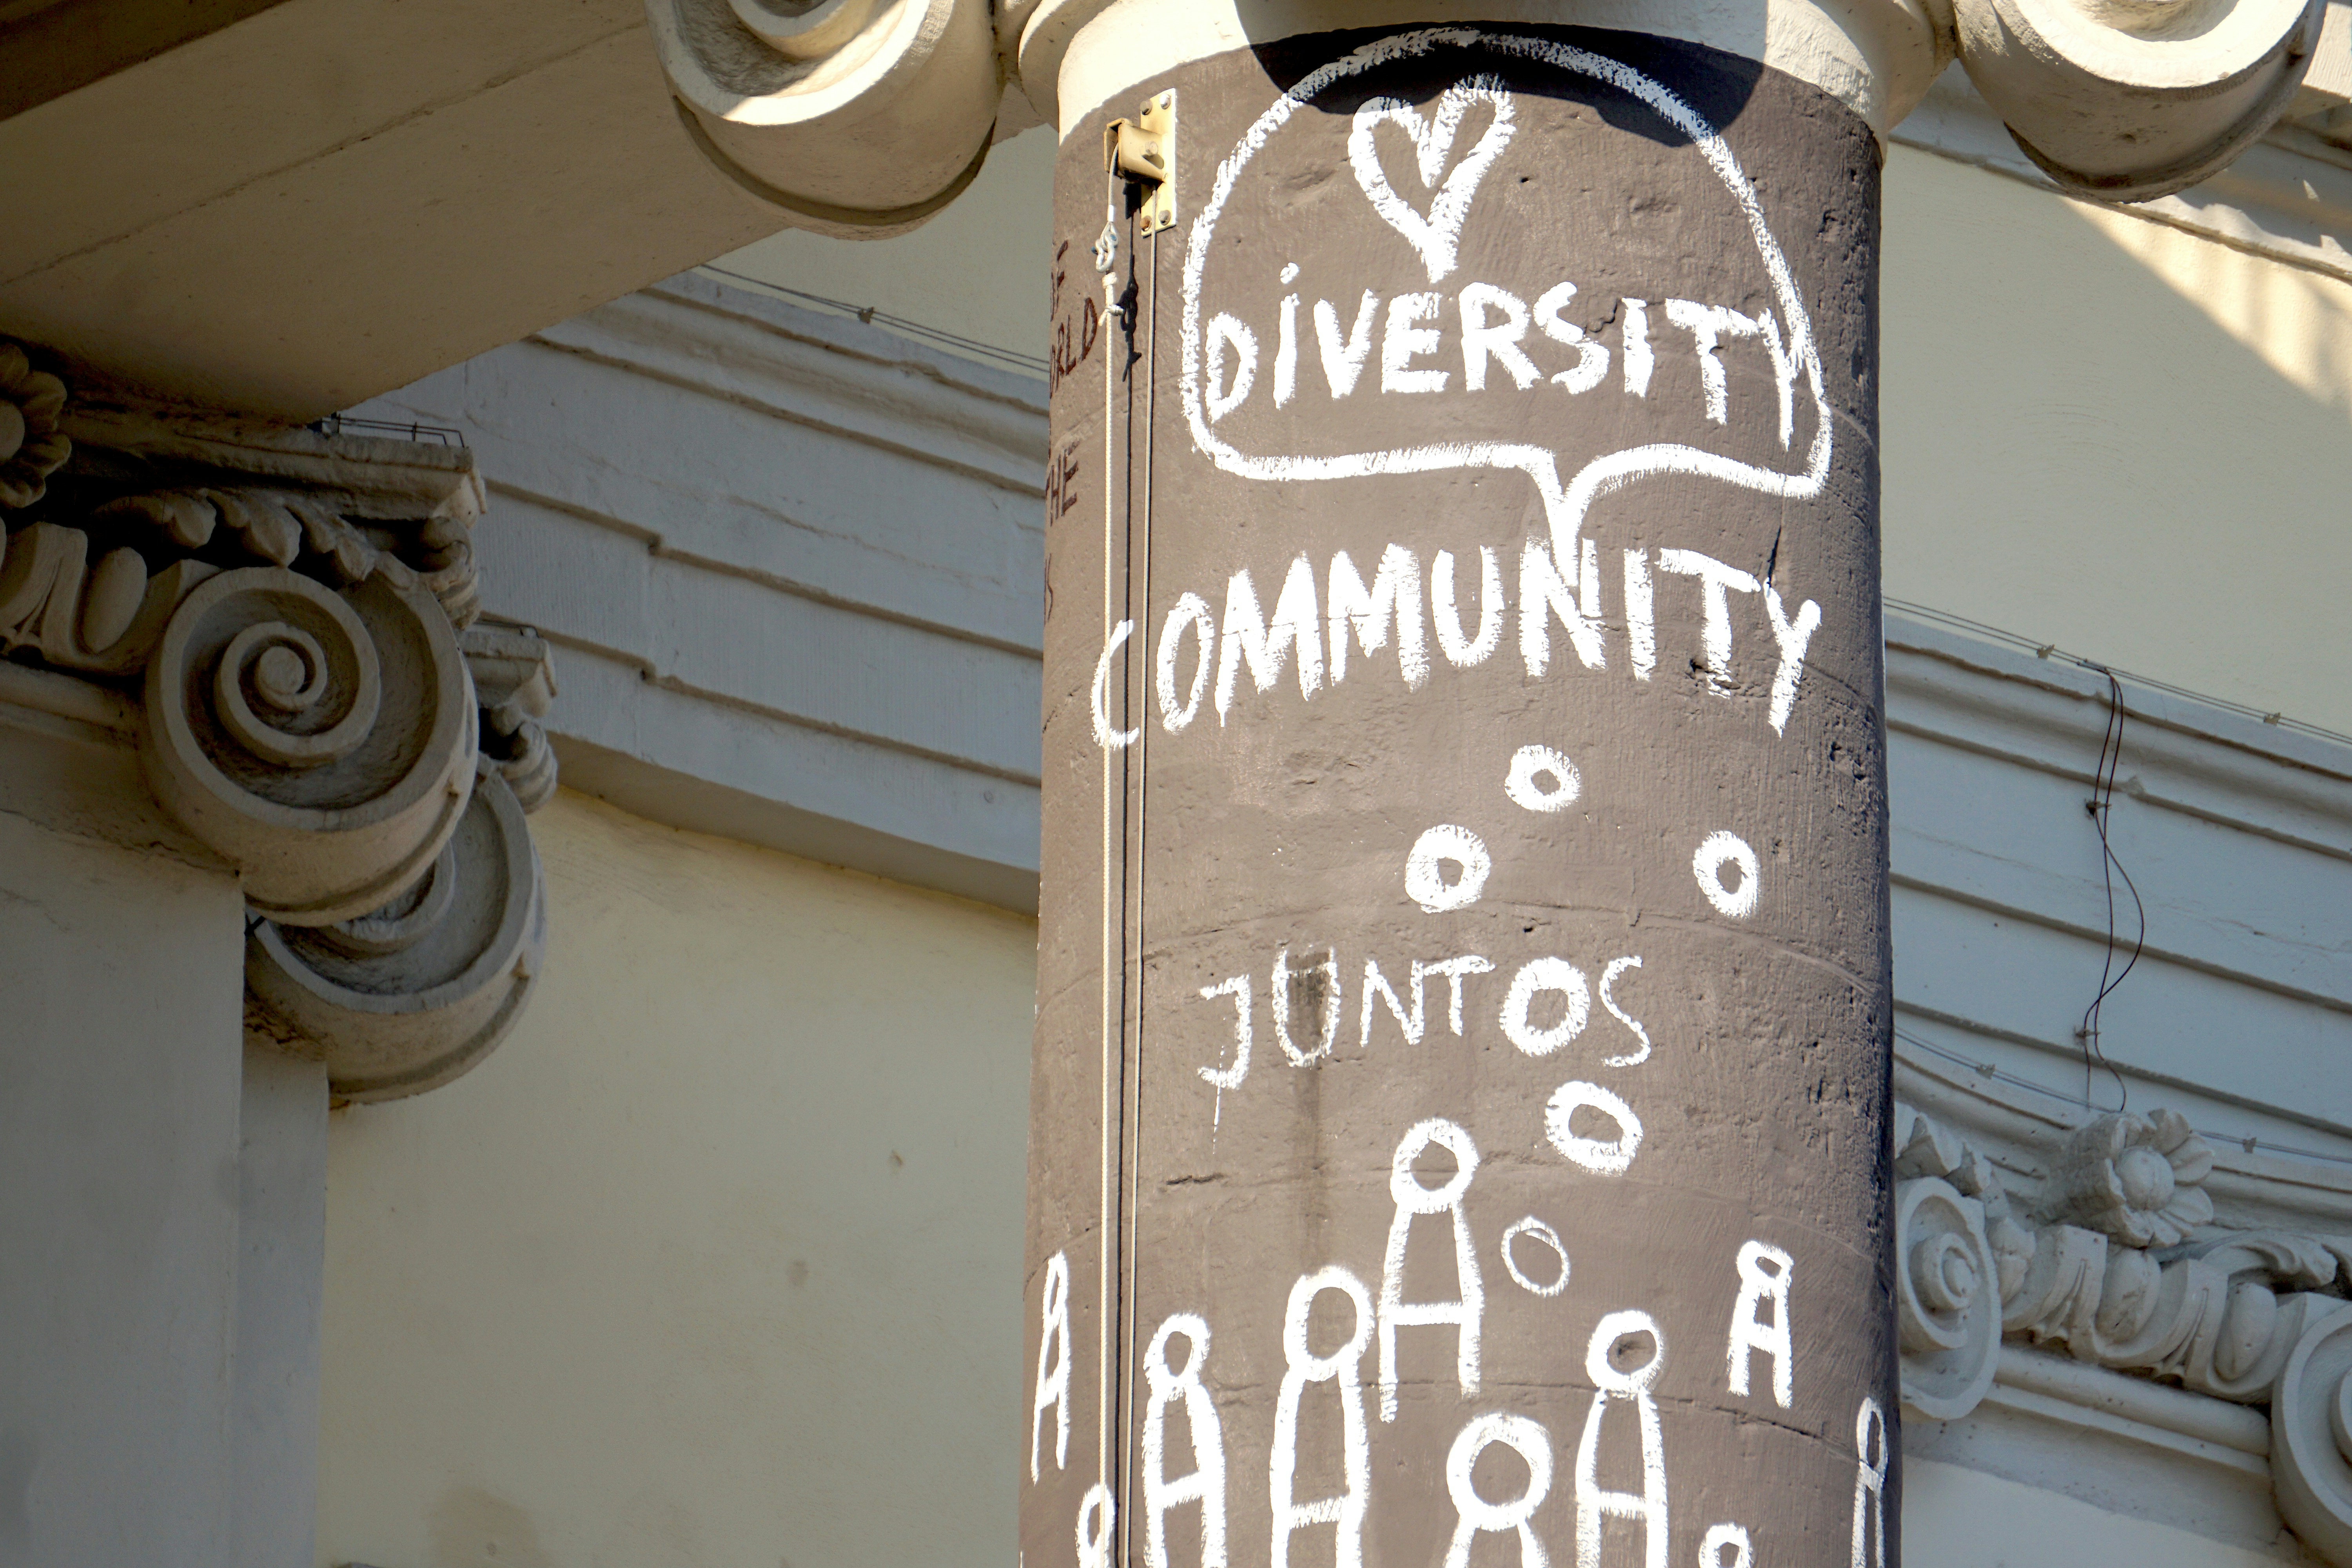 DIVERSITY
COMMUNITY
JUNTOS